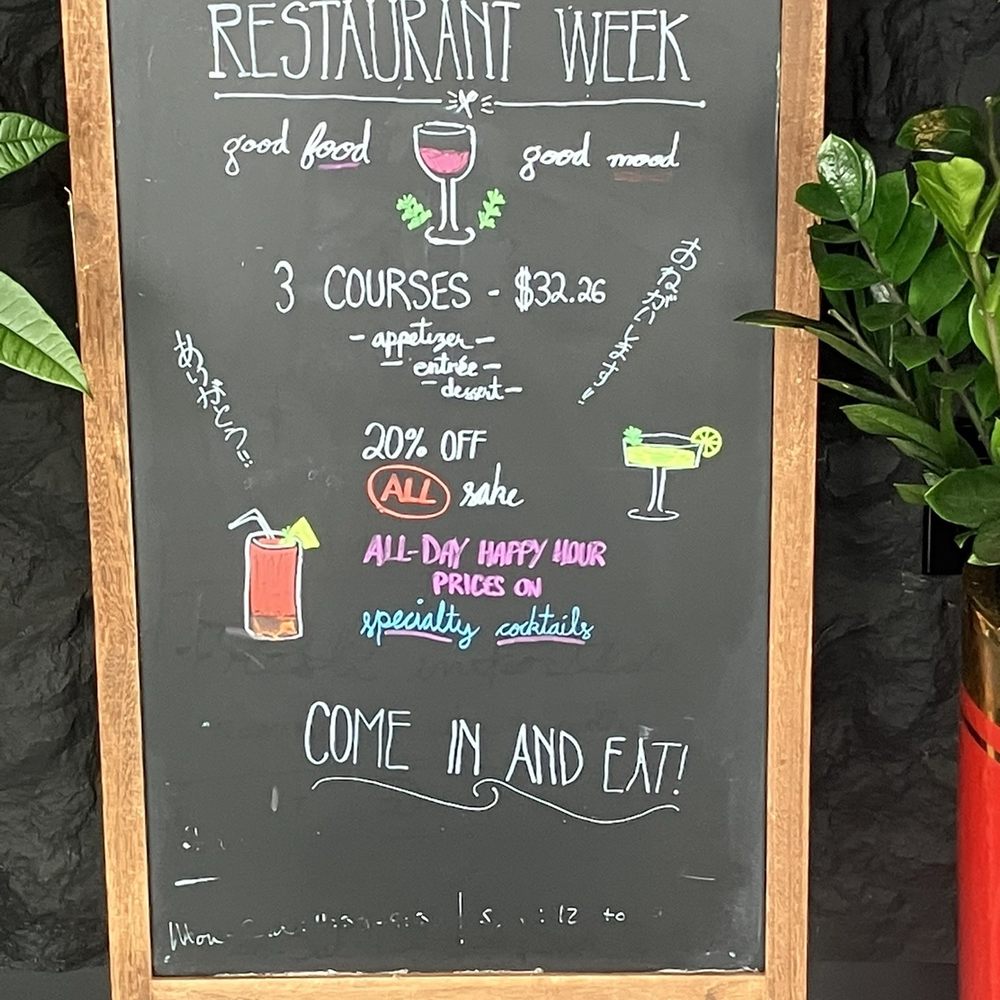 RESTAURANT WEEK
good food good mood
3 COURSES - $32.26
- appetizer -
- entrée -
- dessert -
20% OFF
ALL sake
ALL-DAY HAPPY HOUR
PRICES ON
specialty cocktails
COME IN AND EAT!
Mon
12 to